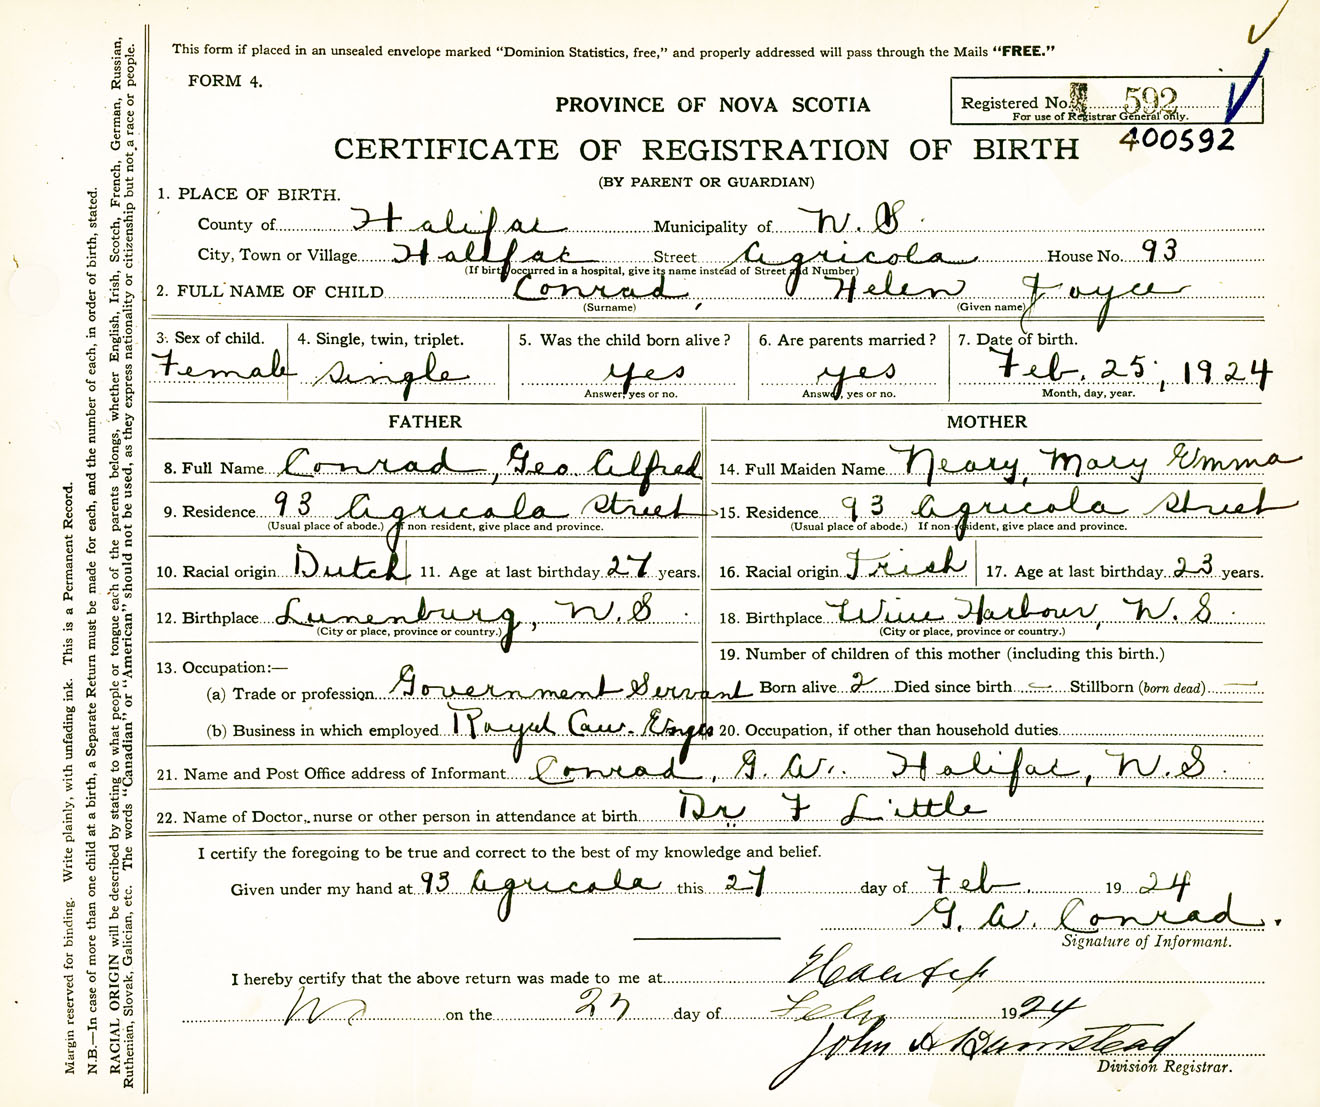 This form if placed in an unsealed envelope marked “Dominion Statistics, free,” and properly addressed will pass through the Mails “FREE.”
FORM 4.
PROVINCE OF NOVA SCOTIA
Registered No. 592
For use of Registrar General only.
400592
CERTIFICATE OF REGISTRATION OF BIRTH
(BY PARENT OR GUARDIAN)
1. PLACE OF BIRTH.
County of Halifax Municipality of N. S.
City, Town or Village Halifax Street Agricola House No. 93
(If birth occurred in a hospital, give its name instead of Street and Number)
2. FULL NAME OF CHILD Conrad, Helen Joyce
(Surname) (Given name)
3. Sex of child. 4. Single, twin, triplet. 5. Was the child born alive? 6. Are parents married? 7. Date of birth.
Female single yes yes Feb. 25, 1924
Answer, yes or no. Answer, yes or no. Month, day, year.
FATHER MOTHER
8. Full Name Conrad, Geo Alfred 14. Full Maiden Name Neary, Mary Emma
9. Residence 93 Agricola Street 15. Residence 93 Agricola Street
(Usual place of abode.) If non resident, give place and province. (Usual place of abode.) If non-resident, give place and province.
10. Racial origin Dutch 11. Age at last birthday 27 years. 16. Racial origin Irish 17. Age at last birthday 23 years.
12. Birthplace Lunenburg, N. S. 18. Birthplace Wine Harbour, N. S.
(City or place, province or country.) (City or place, province or country.)
13. Occupation:— 19. Number of children of this mother (including this birth.)
(a) Trade or profession Government Servant Born alive 2 Died since birth — Stillborn (born dead) —
(b) Business in which employed Royal Can. Engrs 20. Occupation, if other than household duties
21. Name and Post Office address of Informant Conrad, G. A. Halifax, N. S.
22. Name of Doctor, nurse or other person in attendance at birth Dr F Little
I certify the foregoing to be true and correct to the best of my knowledge and belief.
Given under my hand at 93 Agricola this 27 day of Feb 1924
G. A. Conrad.
Signature of Informant.
I hereby certify that the above return was made to me at Halifax
NS on the 27 day of Feby 1924
John A
Division Registrar.
Margin reserved for binding. Write plainly, with unfading ink. This is a Permanent Record.
N.B.—In case of more than one child at a birth, a Separate Return must be made for each, and the number of each, in order of birth, stated.
RACIAL ORIGIN will be described by stating to what people or tongue each of the parents belongs, whether English, Irish, Scotch, French, German, Russian,
Ruthenian, Slovak, Galician, etc. The words “Canadian” or “American” should not be used, as they express nationality or citizenship but not a race or people.